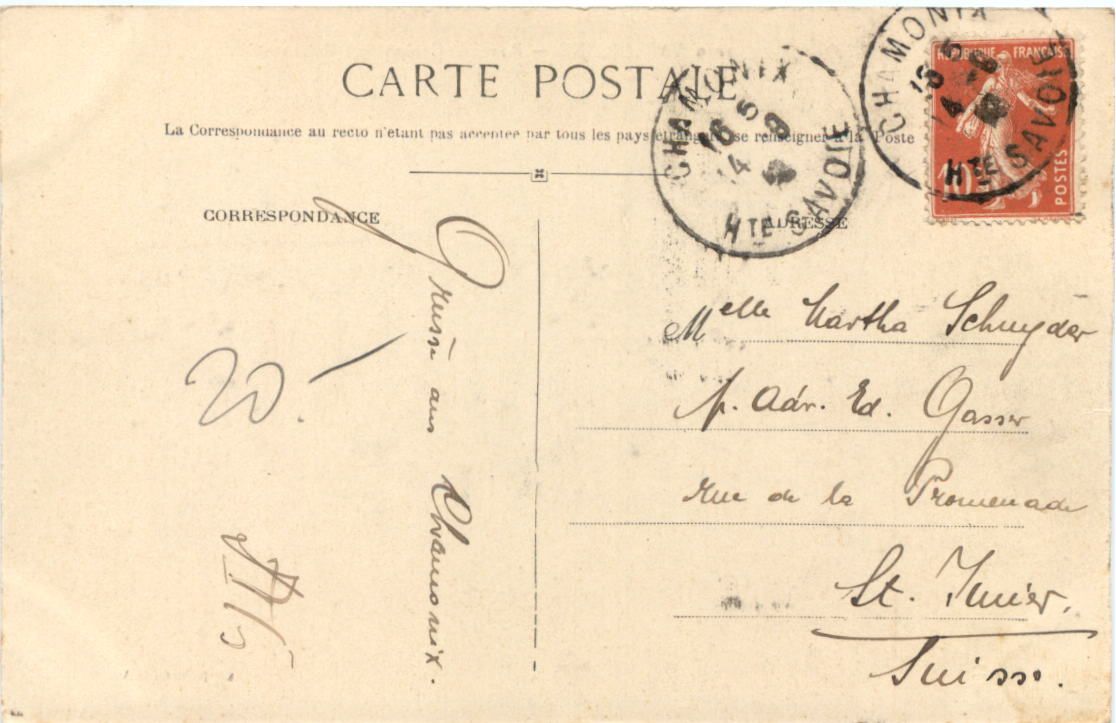 CARTE POSTALE
La Correspondance au recto n'étant pas acceptée par tous les pays étrangers se renseigner à la Poste
CORRESPONDANCE
ADRESSE
CHAMONIX
16 5
4 - 9
HTE SAVOIE
CHAMONIX
16 5
4 - 9
HTE SAVOIE
REPUBLIQUE FRANÇAISE
10
POSTES
Melle Martha Schnyder
p. Adr. Ed. Gasser
Rue de la Promenade
St. Imier.
Suisse.
Grüsse aus Chamonix.